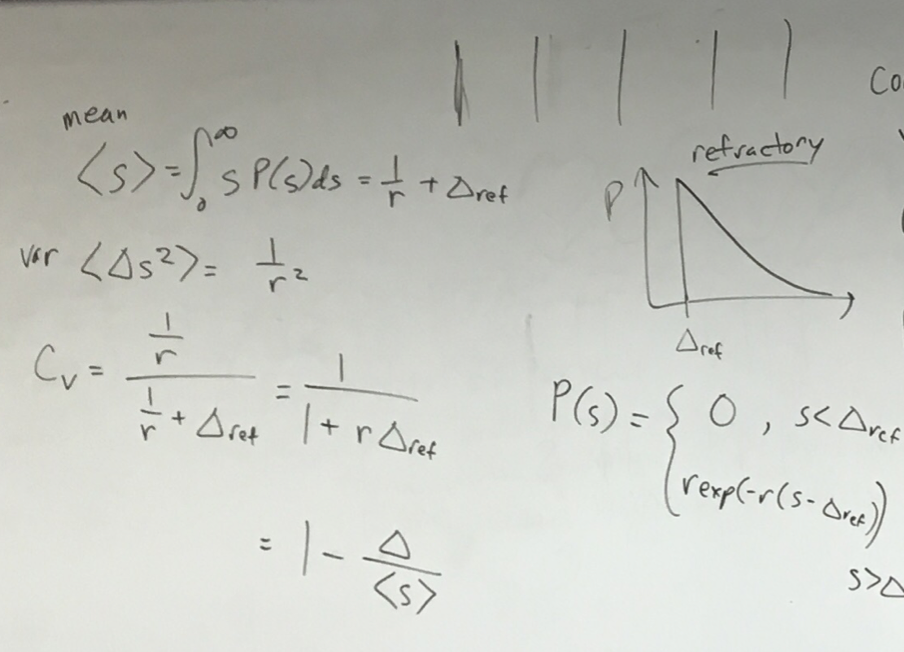 mean
⟨s⟩ = ∫₀^∞ s P(s) ds = 1/r + Δref
var ⟨Δs²⟩ = 1/r²
Cv = (1/r) / (1/r + Δref) = 1 / (1 + r Δref)
= 1 - Δ/⟨s⟩
Co
refractory
P
Δref
P(s) = { 0 , s < Δref
r exp(-r(s - Δref))
s > Δ